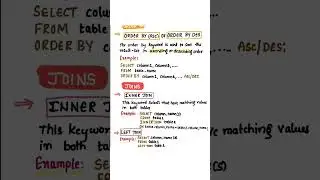 SELECT column
FROM table
ORDER BY co
Asc/Desc;
JOINS
INNER JO
This keyword
in both t
Example:
matching values
→ ORDER BY (ASC) OR ORDER BY DES
The order by keyword is used to sort the
result-set in ascending or descending order
SELECT column1, column2,....
FROM table_name
ORDER BY column1, column2,... ASC/DEC
JOINS
→ INNER JOIN
This keyword selects that have matching values
in both tables
Example: SELECT column_name(s)
FROM table1
INNER JOIN table2
→ LEFT JOIN
Example: SELECT column_name(s)
FROM table1
LEFT JOIN table2